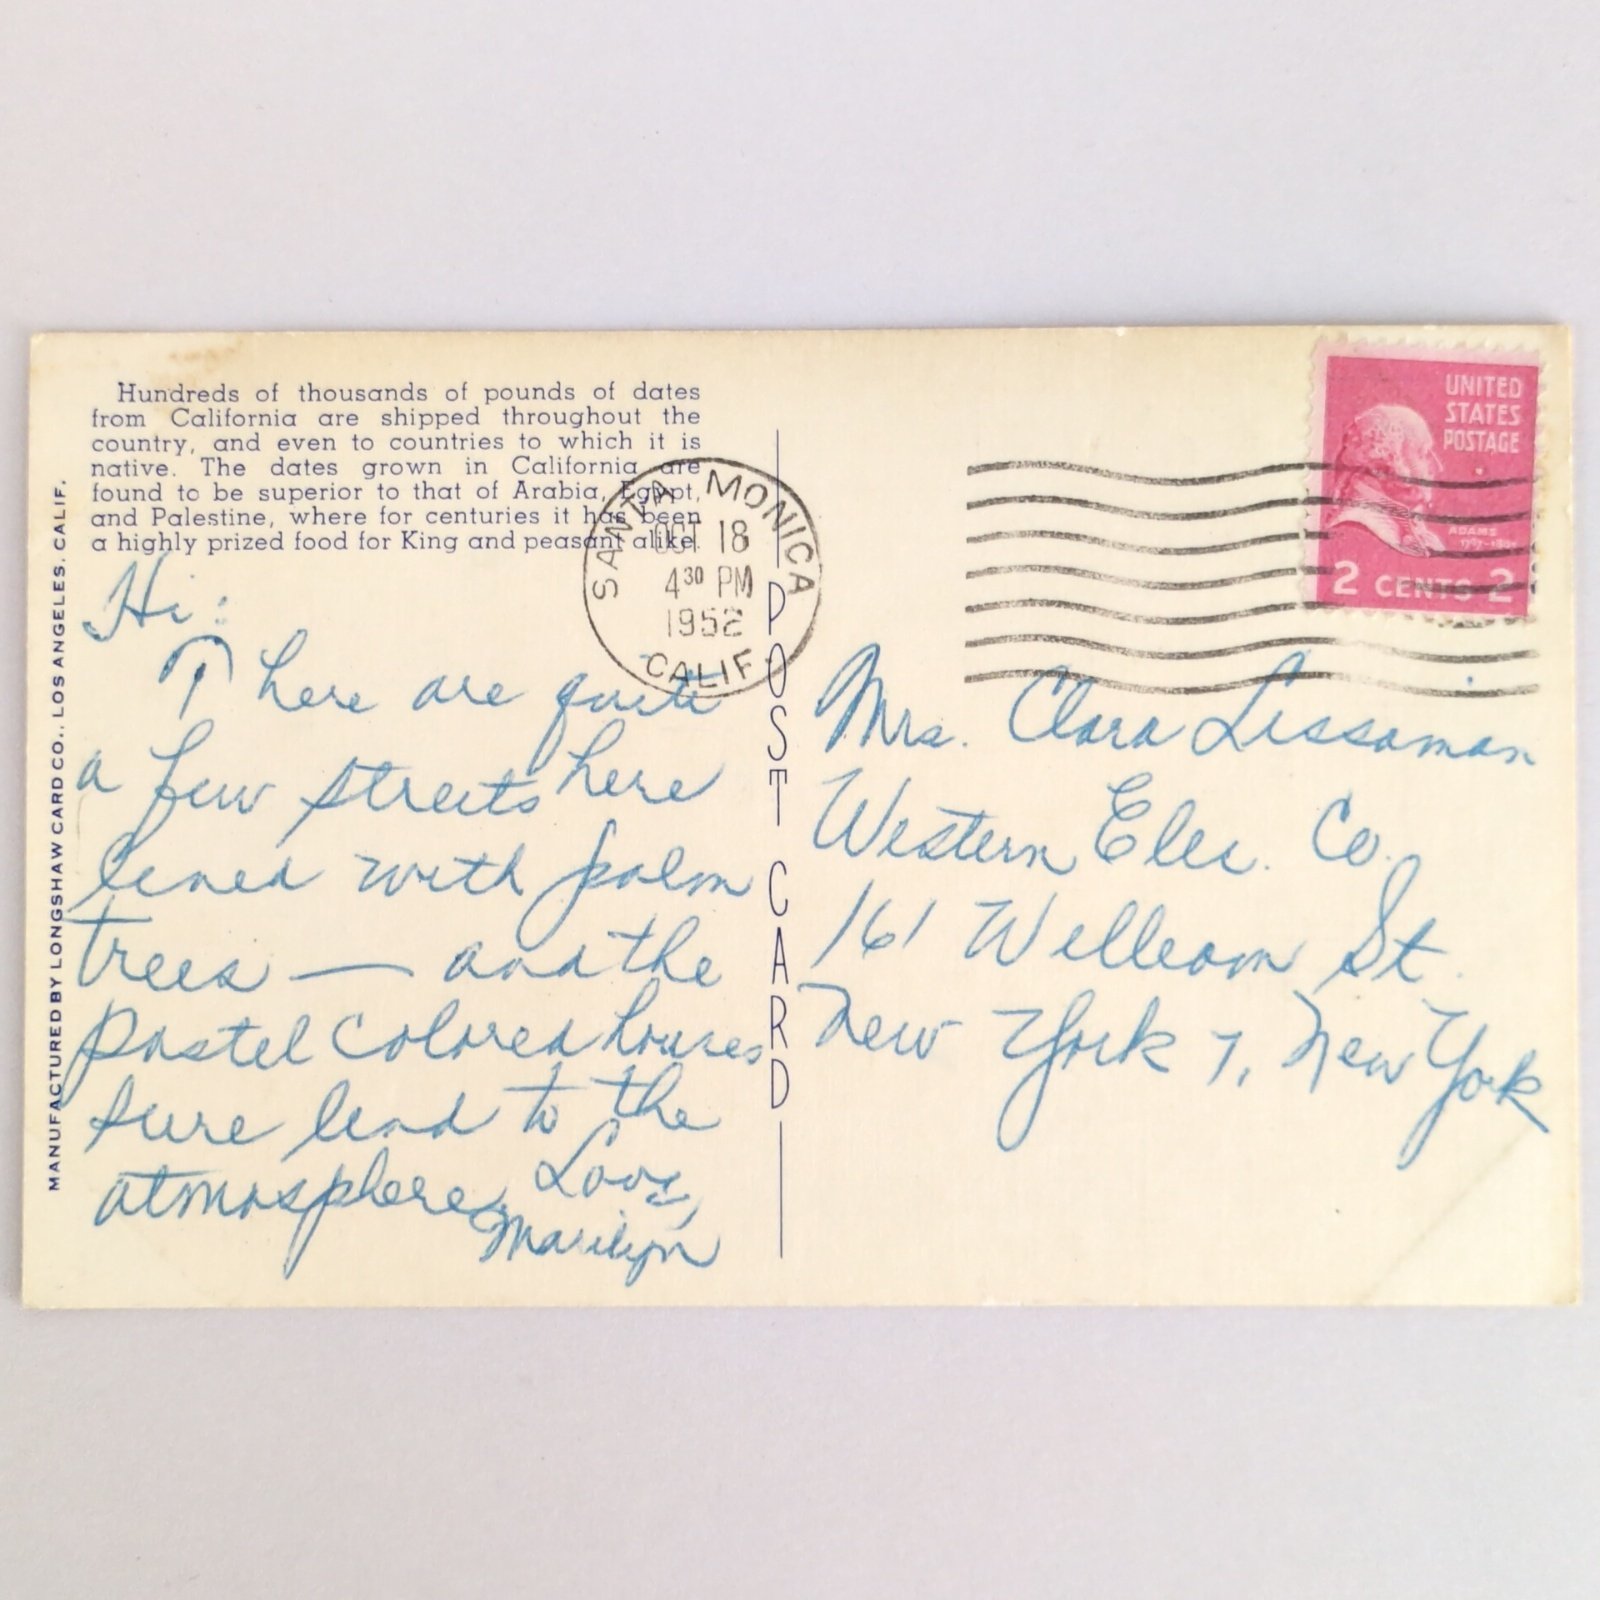 Hundreds of thousands of pounds of dates
from California are shipped throughout the
country, and even to countries to which it is
native. The dates grown in California are
found to be superior to that of Arabia, Egypt,
and Palestine, where for centuries it has been
a highly prized food for King and peasant alike.
MANUFACTURED BY LONGSHAW CARD CO., LOS ANGELES, CALIF.
Hi:
There are quite
a few streets here
lined with palm
trees — and the
pastel colored houses
sure lend to the
atmosphere.
Love,
Marilyn
SANTA MONICA
OCT 18
4 30 PM
1952
CALIF
POST CARD
UNITED
STATES
POSTAGE
ADAMS
2 CENTS 2
Mrs. Clara Lissaman
Western Elec. Co.
161 William St.
New York 7, New York